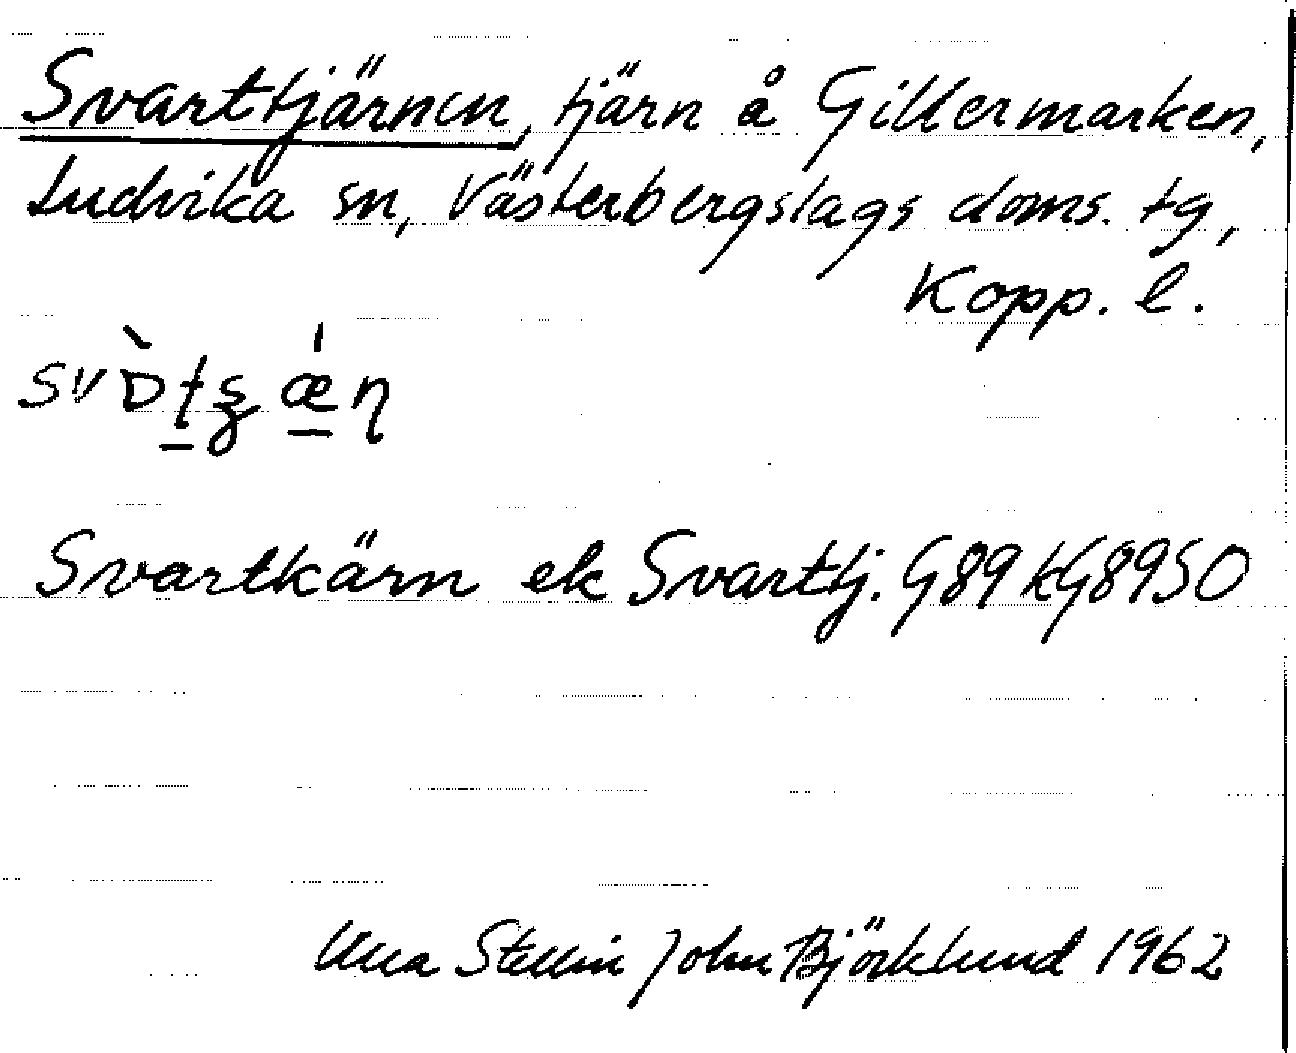 Svarttjärnen, tjärn å Gillermarken,
Ludvika sn, Västerbergslags doms. tg,
Kopp. l.
Svartkärn ek Svarttj. G89 kG8950
Ulla Stellin John Björklund 1962